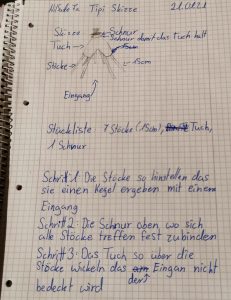 Tipi Skizze 21.01.21
Skizze
Schnur
Schnur damit das Tuch hält
Tuch
15cm
Stöcke
15cm
Eingang
Stückliste 7 Stöcke (15cm), Tuch,
1 Schnur
Schritt 1: Die Stöcke so hinstellen das
sie einen Kegel ergeben mit einem
Eingang
Schritt 2: Die Schnur oben wo sich
alle Stöcke treffen fest zubinden
Schritt 3: Das Tuch so über die
Stöcke wickeln das der Eingan nicht
bedeckt wird